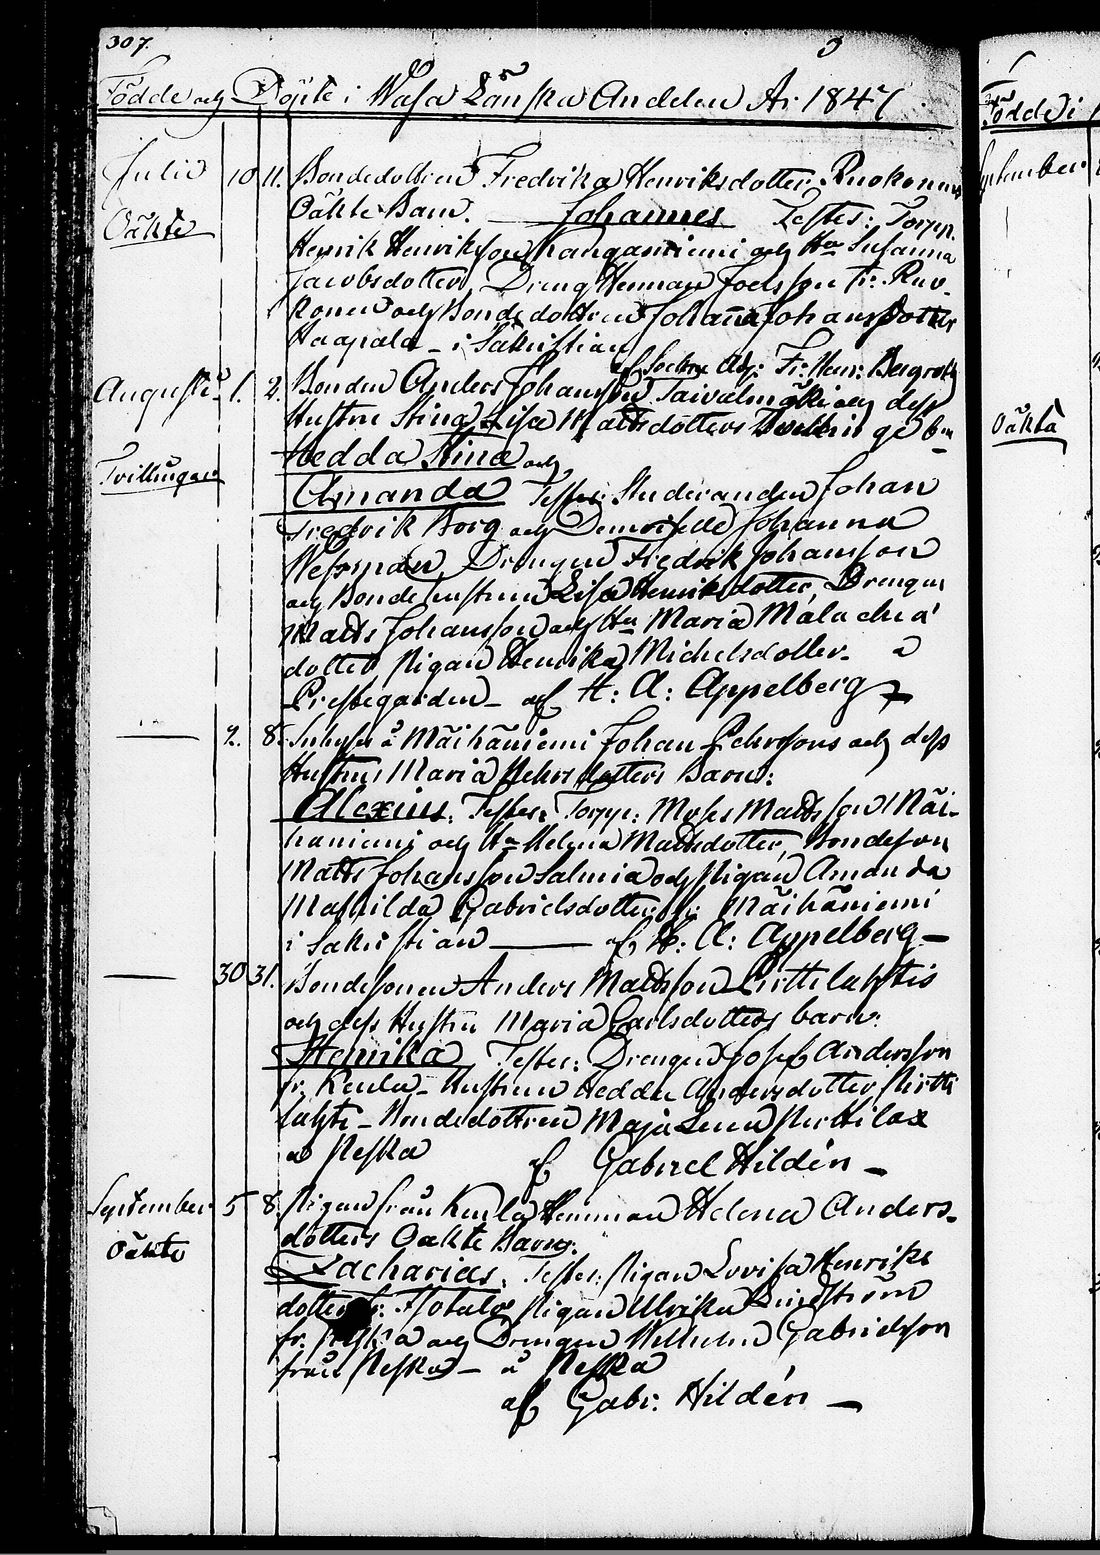 307.
Födde och Döpte i Wasa Länska Andelen År 1847
Födde i
Julii 10 11. Bondedottren Fredrika Henriksdotter Ruokonens
Oäkte
Oäkta Barn. — Johannes Testes: Torpp.
Henrik Henriksson Kangasniemi och Hu Susanna
Jacobsdotter, Dreng Herman Joelsson fr: Ruo-
konen och Bonde dottren Johanna Johansdotter
Haapala — i Sakristian
af Sockne Adj: Fr: Henr: Bergroth
Augusti 1. 2. Bonden Anders Johansson Taivalmäki och dess
Hustru Stina Lisa Mattsdotters
Tvillingar
Hedda Stina och
Amanda Testes: Studeranden Johan
Fredrik Borg och Demoiselle Johanna
Drengen Fredrik Johansson
och Bonde hustrun Lisa Henriksdotter, Drengen
Matts Johansson och Hu Maria Malachia
dotter Pigan Henrika Michelsdotter. å
Prestegården — af H: A: Appelberg
— 2. 8. Inhyses å Mäihäniemi Johan Pehrssons och dess
Hustrus Maria Pehrsdotters Barn:
Alexius. Testes: Torpp: Moses Mattsson Mäi-
häniemi och Hu Helena Mattsdotter, Bondeson
Matts Johansson Salmia och Pigan Amanda
Mathilda Gabrielsdotter fr: Mäihäniemi
i Sakristian — af H: A: Appelberg —
— 30 31. Bondesonen Anders Mattsson Pirttilahtis
och dess Hustru Maria Carlsdotters barn:
Henrika Testes: Drengen Josef Andersson
fr. Keula — Hustrun Hedda Andersdotter Pirtti
lahti — Bondedottren Maja Lena Perttilax
å Peska af Gabriel Hildén —
September 5 8. Pigan från Keula Hemman Helena Anders-
Oäkte
dotters Oäkta Barn:
Zacharias. Testes: Pigan Lovisa Henriks
dotter fr. Pigan Ulrika
fr. Peska och Drengen Wilhelm Gabrielsson
från Peska — å Peska
af Gabr: Hildén —
September
Oäkta